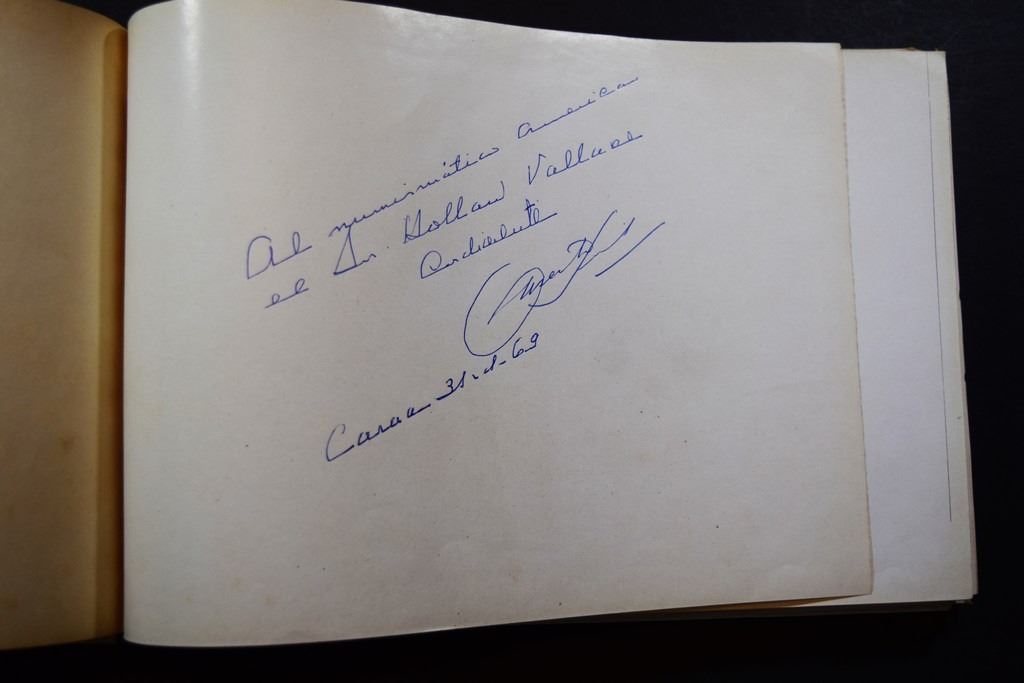 Al numismático americano
el Sr. Holland Wallace
Cordialmente
Caracas 31-1-69